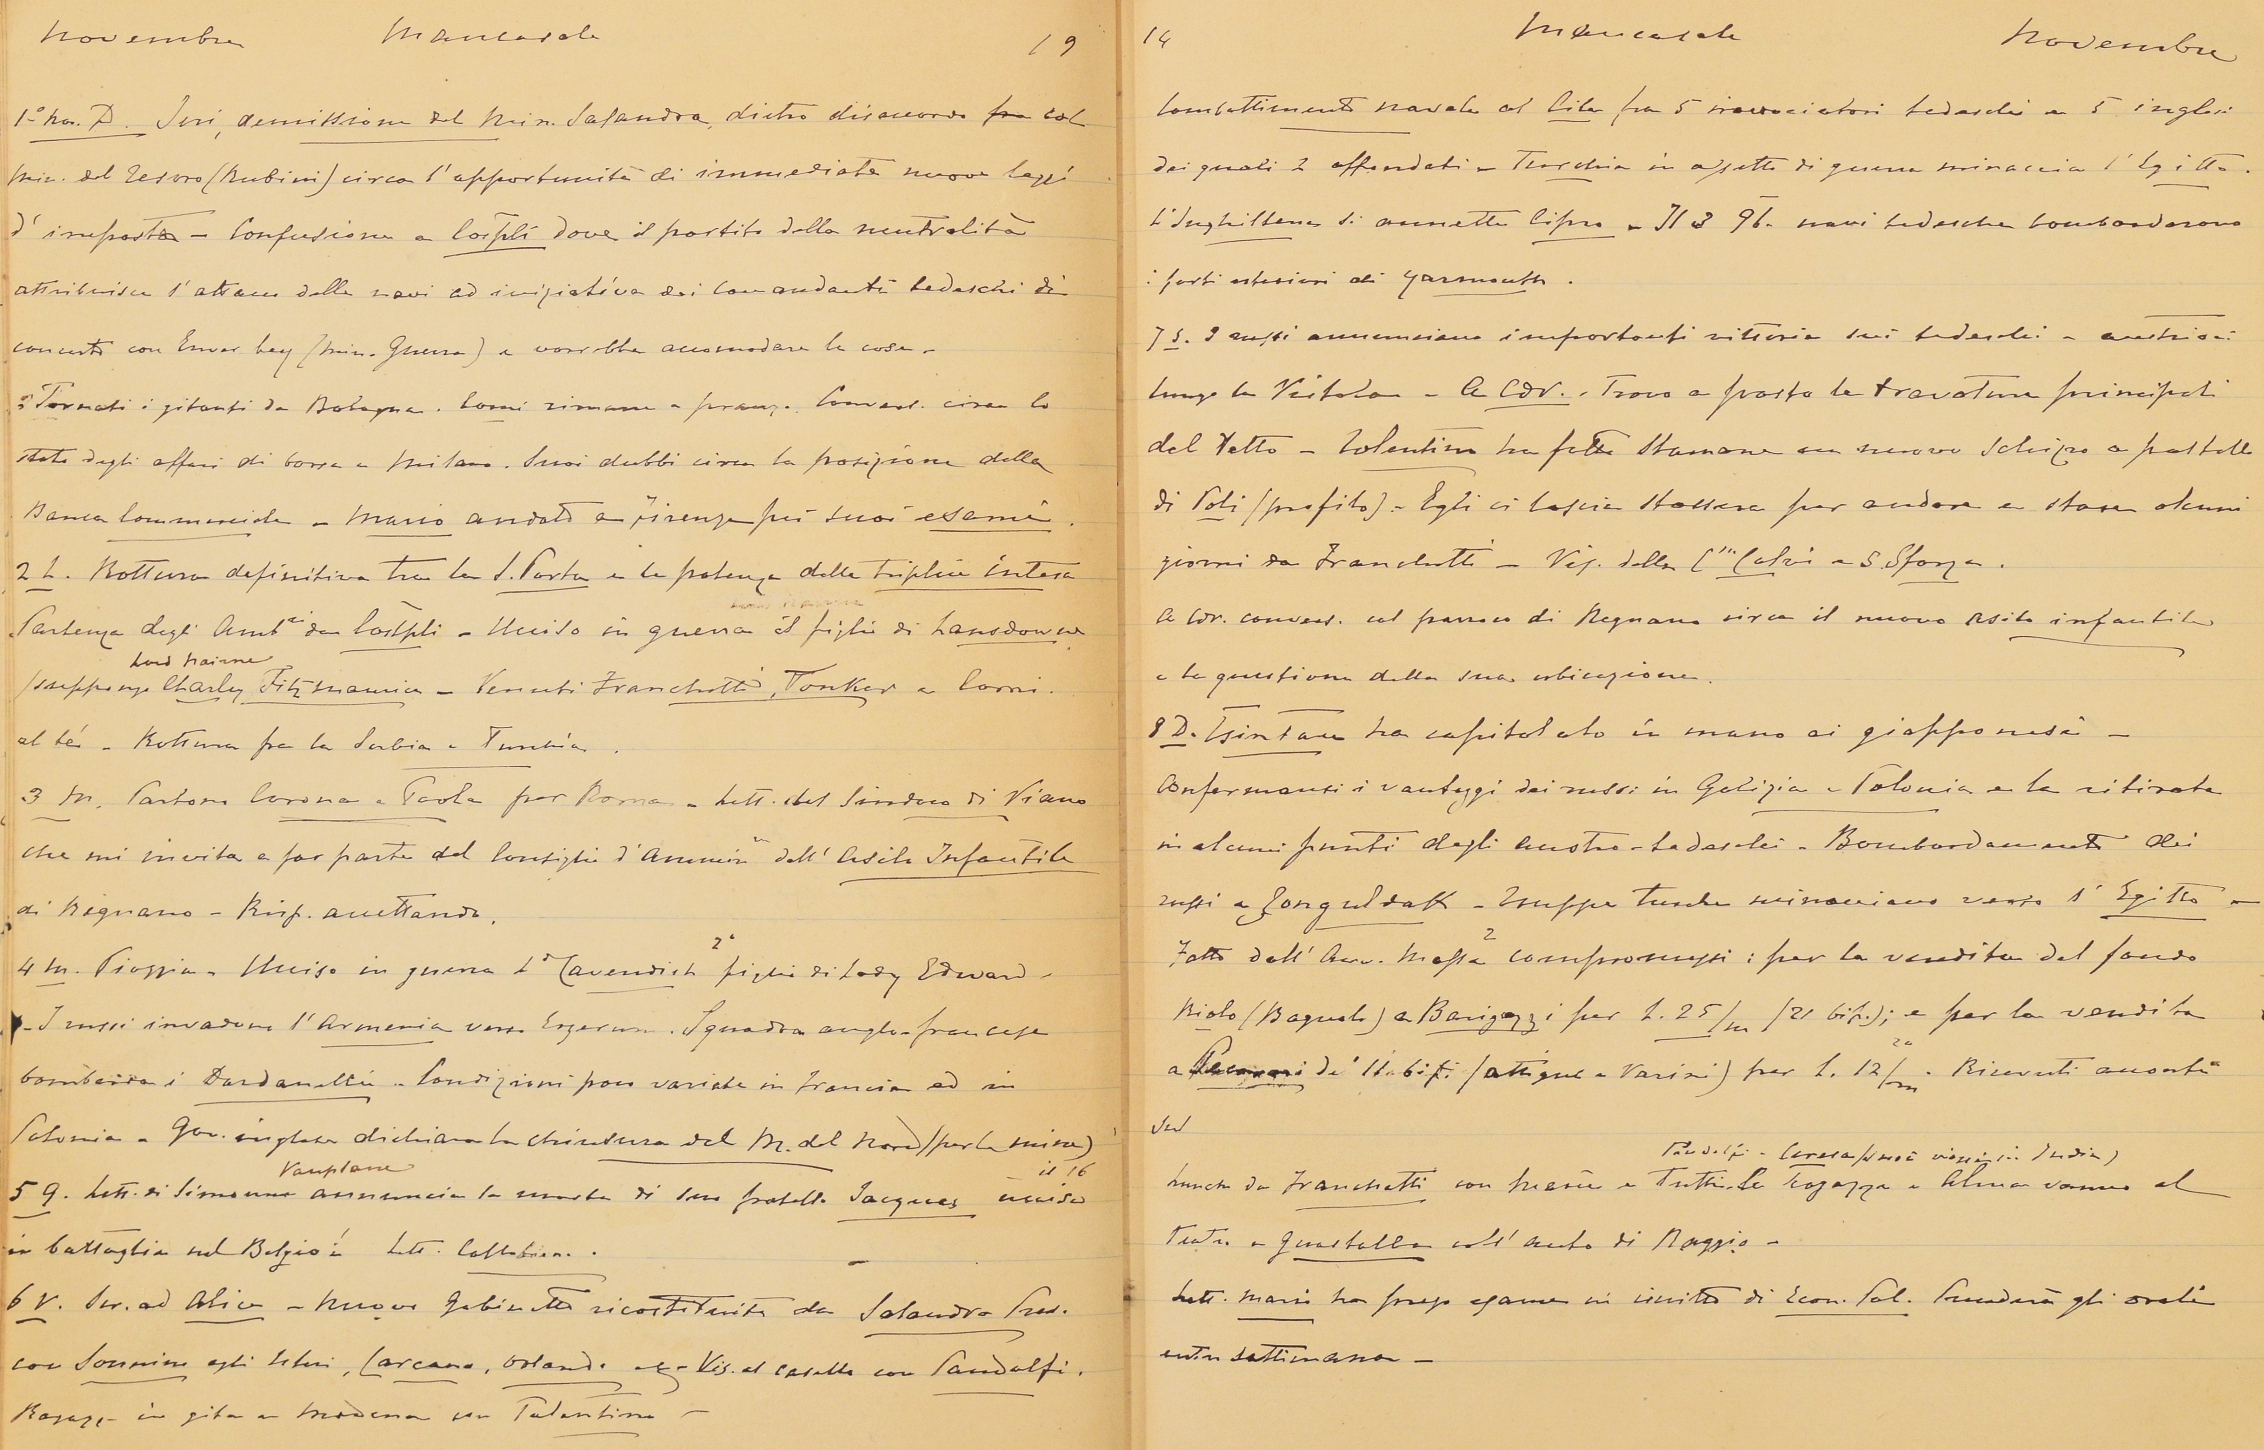 Novembre Mancasale 19
1º Nov. D. Ieri, demissione del Min. Salandra, dietro disaccordo fra col
Min. del Tesoro (Rubini) circa l'opportunità di immediate nuove leggi
d'imposta - Confusione a Costpli dove il partito della neutralità
attribuisce l'attacco delle navi ad iniziativa dei Comandanti tedeschi di
concerto con Enver bey (Min. Guerra) e vorrebbe accomodare le cose -
Tornati i gitanti da Bologna. Corni rimane a pranzo. Convers. circa lo
stato degli affari di borsa a Milano. Suoi dubbi circa la posizione della
Banca Commerciale - Mario andato a Firenze pei suoi esami.
2 L. Rottura definitiva tra la S. Porta e le potenze della triplice intesa
Partenza degli Ambri da Costpli - Ucciso in guerra il figlio di Lansdowne
Lord Nairne
(suppongo Charley Fitzmaurice - Venuti Franchetti, Tonker e Corni.
al tè - Rottura fra la Serbia e Turchia.
3 M. Partono Corona e Paola per Roma - Lett. del Sindaco di Viano
che mi invita a far parte del Consiglio d'Ammin ne dell' Asilo Infantile
di Regnano - Risp. accettando.
4 M. Pioggia - Ucciso in guerra Ld Cavendish 2º figlio di Lady Edward -
- I russi invadono l'Armenia verso Erzerum. Squadra anglo-francese
bombarda i Dardanelli - Condizioni poco variate in Francia ed in
Polonia - Gov. inglese dichiara la chiusura del M. del Nord (per le mine)
Vauplane il 16
5 G. Lett. di Simonne annuncia la morte di suo fratello Jacques ucciso
in battaglia nel Belgio Lett.
6 V. Scr. ad Alice - Nuovo Gabinetto ricostituito da Salandra Pres.
con Sonnino agli Esteri, Carcano, Orlando - Vis. al Casello con Pandolfi.
Ragazze in gita a Modena con Tolentino -
14 Mancasale Novembre
Combattimento navale al Cile fra 5 incrociatori tedeschi e 5 inglesi
dei quali 2 affondati - Turchia in assetto di guerra minaccia l'Egitto.
L'Inghilterra si annette Cipro - Il 3 9b. navi tedesche bombardarono
i forti esteriori di Yarmouth.
7 S. I russi annunciano importanti vittorie sui tedeschi - austriaci
lungo la Vistola - A Cdr. Trovo a posto le travature principali
del tetto - Tolentino ha fatto stamane un nuovo schizzo a pastello
di Poli (profilo) - Egli ci lascia stassera per andare a stare alcuni
giorni da Franchetti - Vis. della Cssa Calvi e S. Sforza.
A Cdr. convers. col parroco di Regnano circa il nuovo Asilo infantile
e la questione della sua ubicazione.
8 D. Tsintau ha capitolato in mano ai giapponesi -
Confermansi i vantaggi dei russi in Galizia e Polonia e la ritirata
in alcuni punti degli austro-tedeschi - Bombardamento dei
russi a Zonguldak - Truppe turche minacciano verso l'Egitto -
Fatto dall'Avv. Massa 2 compromessi: per la vendita del fondo
Riolo (Bagnolo) a Barigazzi per L. 25/m (21 bif.); e per la vendita
a de' 11 bif. (attigue a Varini) per L. 12/m - Ricevuti acconti
Pandolfi - Ceresa viaggi in India)
Lunch da Franchetti con Maria e Tutti. Le ragazze e Alma vanno al
Teatro a Guastalla coll'auto di Reggio -
Lett. Mario ha preso esame in iscritto di Econ. Pol. Prenderà gli orali
entro settimana -